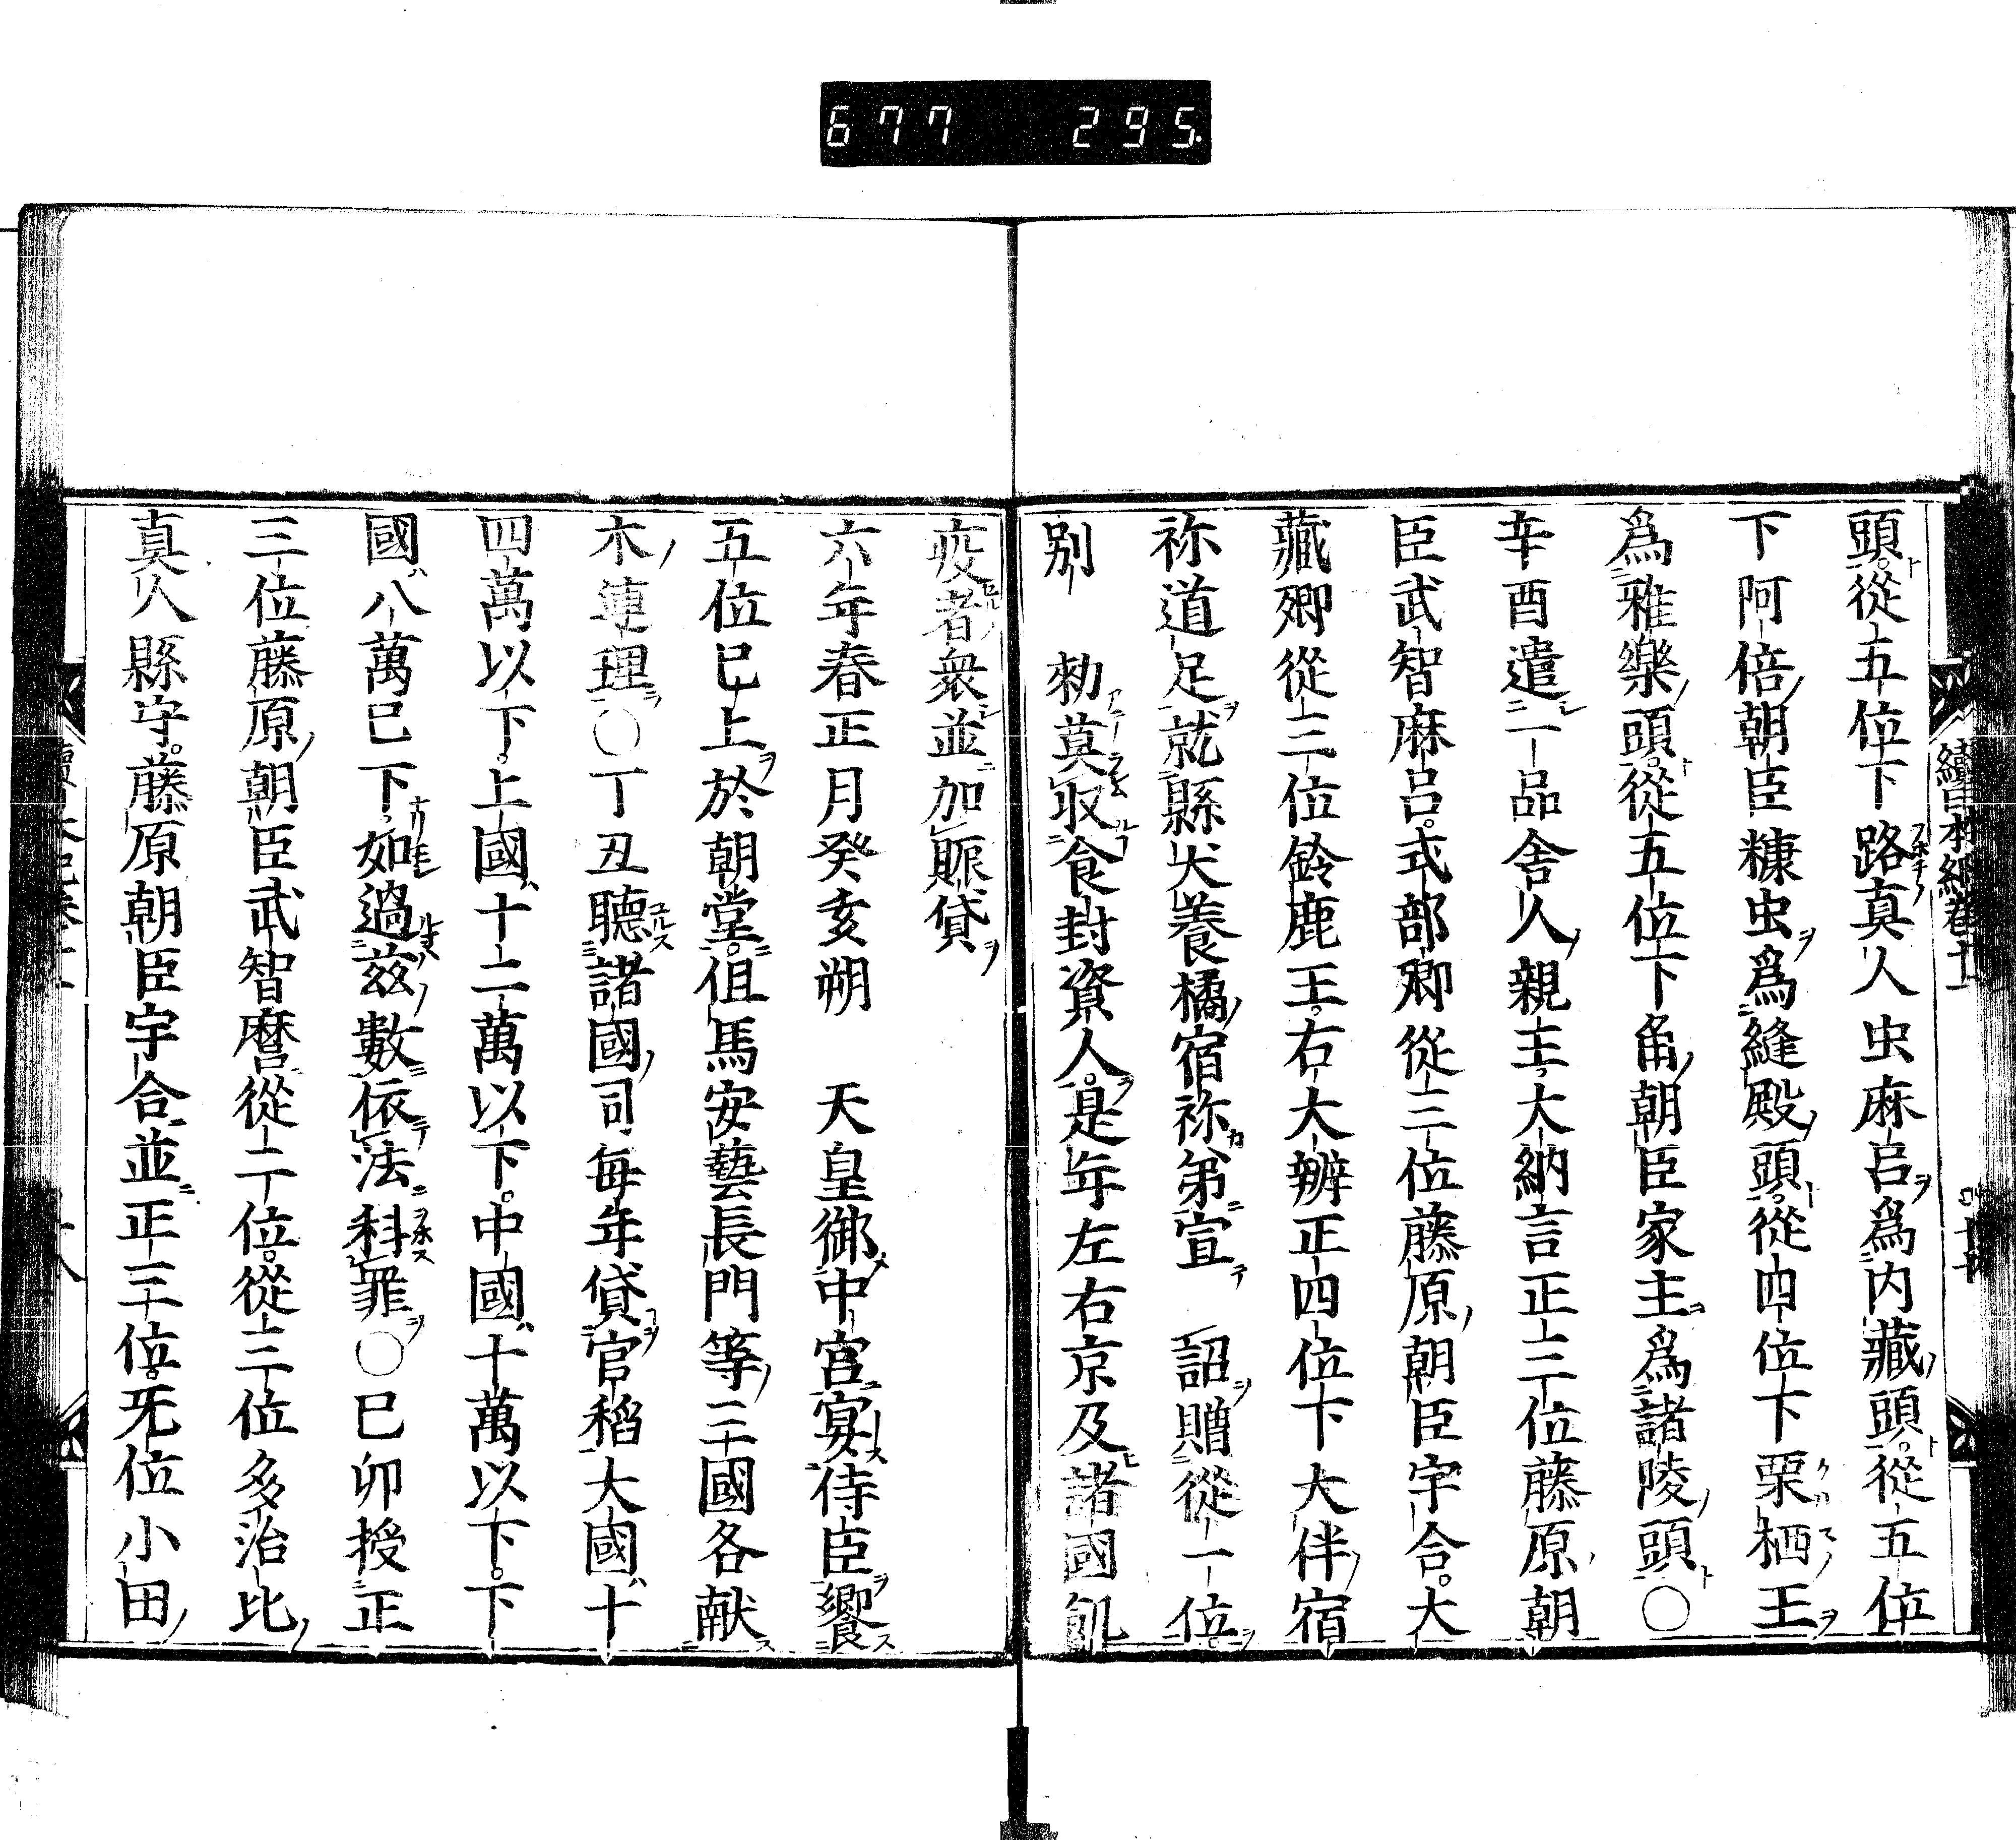 677 295
頭從五位下路真人虫麻呂爲内藏頭從五位
下阿倍朝臣糠虫爲縫殿頭從四位下栗栖王
爲雅樂頭從五位下角朝臣家主爲諸陵頭○
辛酉遣一品舍人親王大納言正三位藤原朝
臣武智麻呂式部卿從三位藤原朝臣宇合大
藏卿從三位鈴鹿王右大辨正四位下大伴宿
祢道足就縣犬養橘宿祢第宣 詔贈從一位
別 勅莫収食封資人是年左右京及諸國飢
疫者衆並加賑貸
六年春正月癸亥朔 天皇御中宮宴侍臣饗
五位已上於朝堂但馬安藝長門等三國各献
木連理○丁丑聽諸國司毎年貸官稻大國十
四萬以下上國十二萬以下中國十萬以下下
國八萬已下如過茲數依法科罪○已卯授正
三位藤原朝臣武智麿從二位從三位多治比
真人縣守藤原朝臣宇合並正三位旡位小田